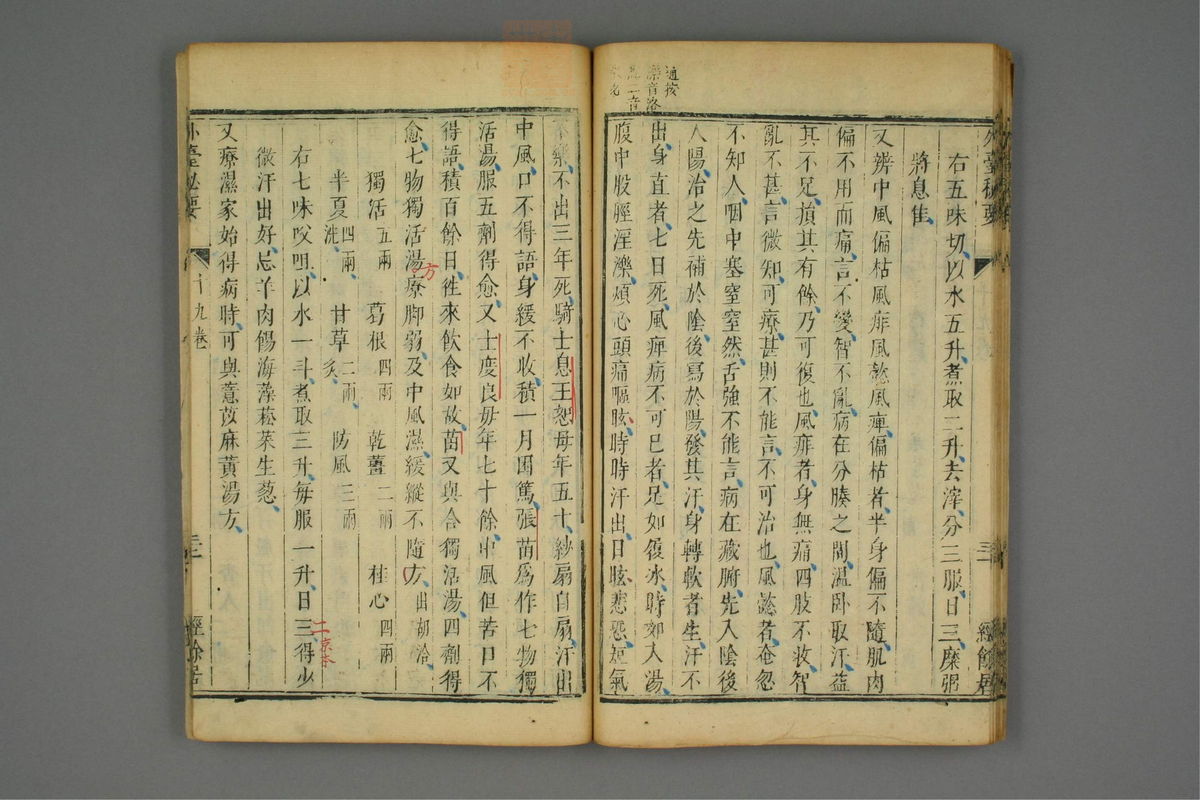 外臺秘要
三
經餘居
右五味切以水五升煮取二升去滓分三服日三糜粥
將息佳
又辨中風偏枯風痱風懿風痺偏枯者半身偏不隨肌肉
偏不用而痛言不變智不亂病在分腠之間溫卧取汗益
其不足損其有餘乃可復也風痱者身無痛四肢不收智
亂不甚言微知可療甚則不能言不可治也風懿者奄忽
不知人咽中塞窒窒然舌強不能言病在藏腑先入陰後
入陽治之先補於陰後寫於陽發其汗身轉軟者生汗不
出身直者七日死風痺病不可已者足如履冰時如入湯
腹中股脛淫濼煩心頭痛嘔眩時時汗出目眩悲恐短氣
通按
濼音洛
二音
不樂不出三年死騎士息王恕母年五十紗扇自扇汗出
中風口不得語身緩不收積一月困篤張苗爲作七物獨
活湯服五劑得愈又士度良母年七十餘中風但苦口不
得語積百餘日往來飲食如故苗又與合獨活湯四劑得
愈七物獨活湯療脚弱及中風濕緩縱不隨方出胡洽
方
獨活五兩 葛根四兩 乾薑二兩 桂心四兩
半夏四兩洗 甘草二兩炙 防風三兩
右七味㕮咀以水一斗煮取三升每服一升日三得少
二宋本
微汗出好忌羊肉餳海藻菘菜生葱
又療濕家始得病時可與薏苡麻黃湯方
外臺秘要
十九卷
三
經餘居